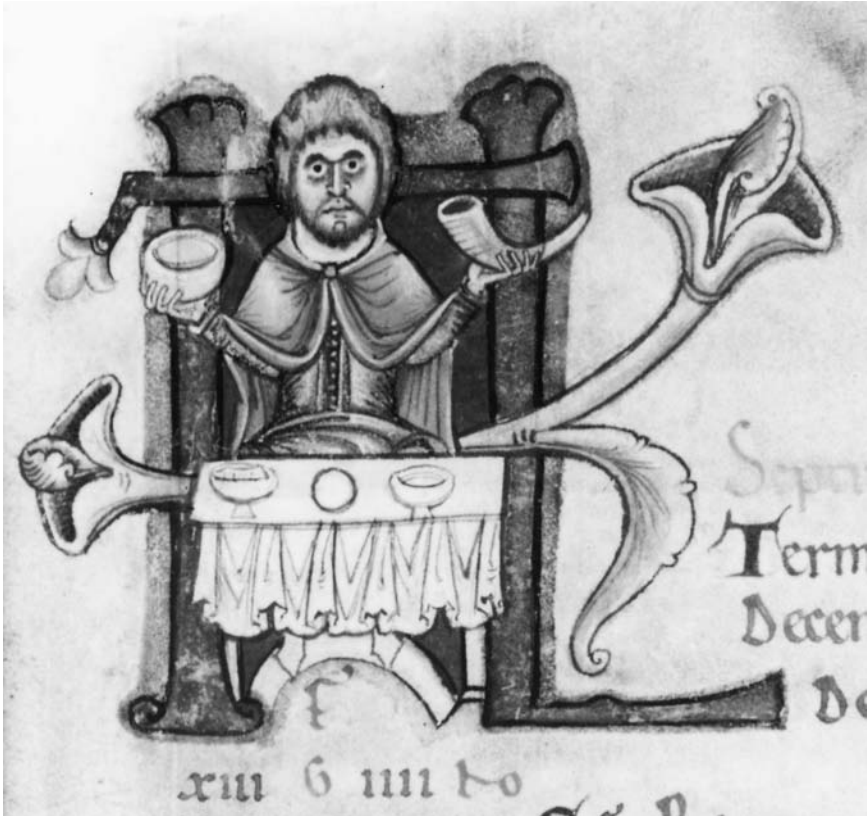 KL
Sept
Term
Decem
De
F
xiii G iiii No